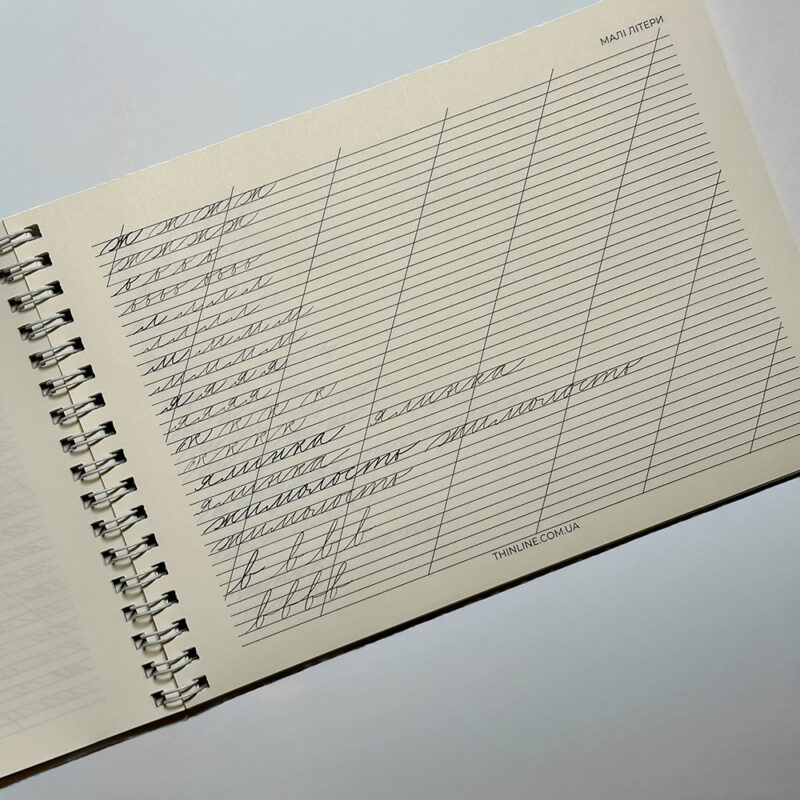 МАЛІ ЛІТЕРИ
ж ж ж ж
ж ж ж ж
ь ь ь ь
ьььь ьььь
л л л л
л л л л
м м м м
м м м м
я я я я я
я я я я
к к к к к
к к к к
ялинка ялинка
ялинка
жимолость жимолость
жимолость
в в в в
в в в в
THINLINE.COM.UA